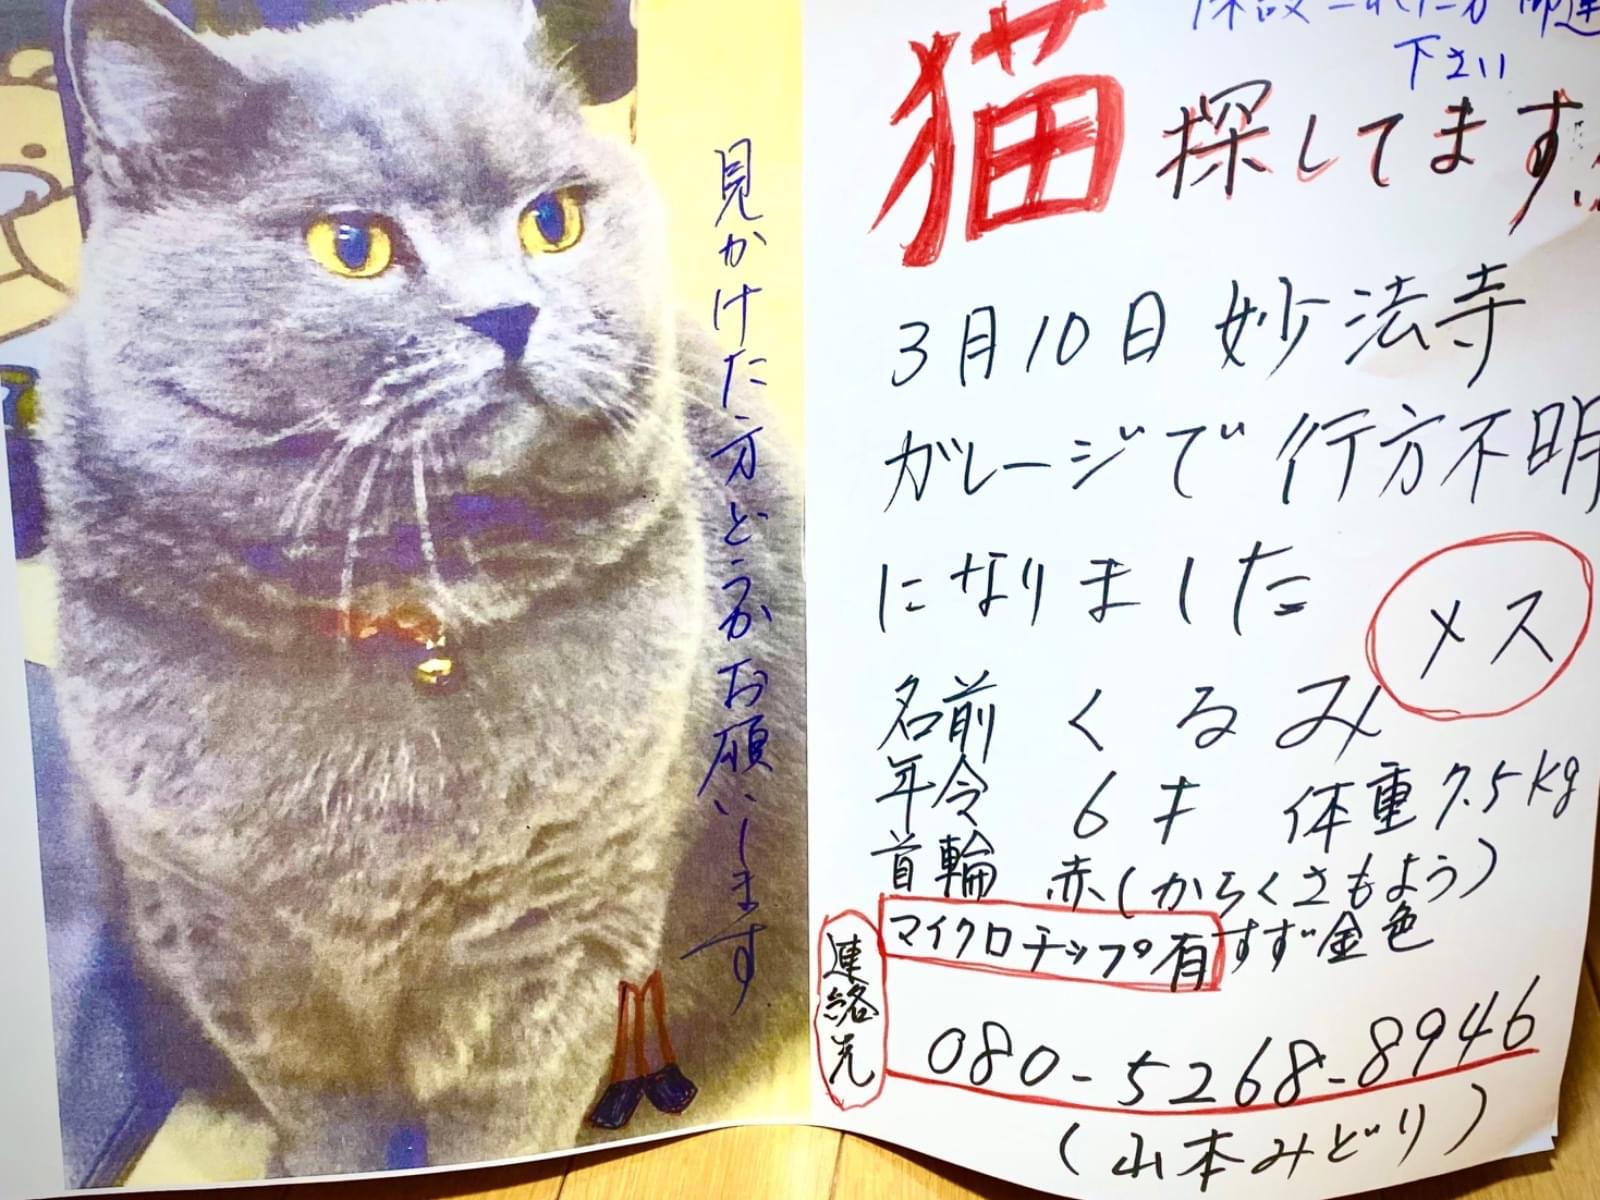 保護された方御連
下さい
猫探してます
3月10日 妙法寺
ガレージで行方不明
になりました
メス
名前 くるみ
年令 6才 体重7.5kg
首輪 赤(からくさもよう)
マイクロチップ有 すず金色
連絡先
080-5268-8946
(山本みどり)
見かけた方どうかお願いします